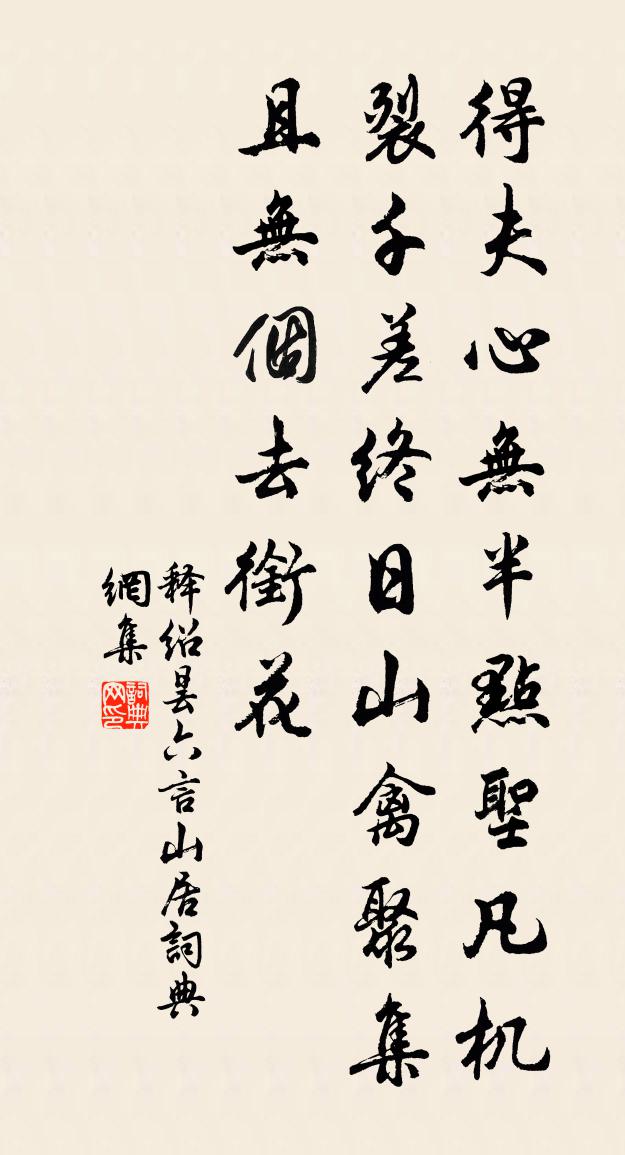 得夫心無半點聖凡机
裂千差終日山禽聚集
且無個去銜花
释绍昙六言山居詞典
網集
詞典网印